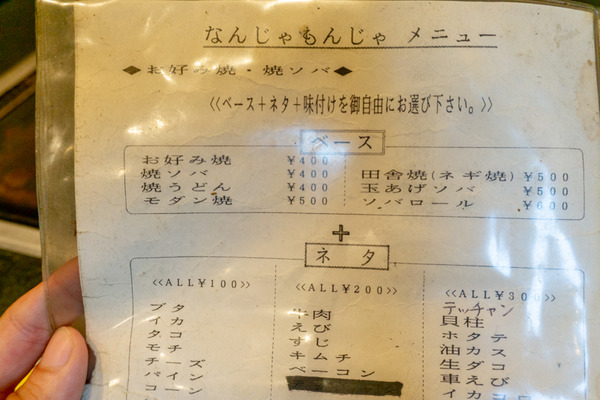 なんじゃもんじゃ メニュー
◆お好み焼・焼ソバ◆
《ベース＋ネタ＋味付けを御自由にお選び下さい。》
ベース
お好み焼 ¥400
焼ソバ ¥400
焼うどん ¥400
モダン焼 ¥500
田舎焼(ネギ焼) ¥500
玉あげソバ ¥500
ソバロール ¥600
＋
ネタ
《ALL¥100》
ブタ
イカ
タコ
モチ
チーズ
パイン
コーン
《ALL¥200》
牛肉
えび
すじ
キムチ
ベーコン
《ALL¥300》
テッチャン
貝柱
ホタテ
油カス
生ダコ
車えび